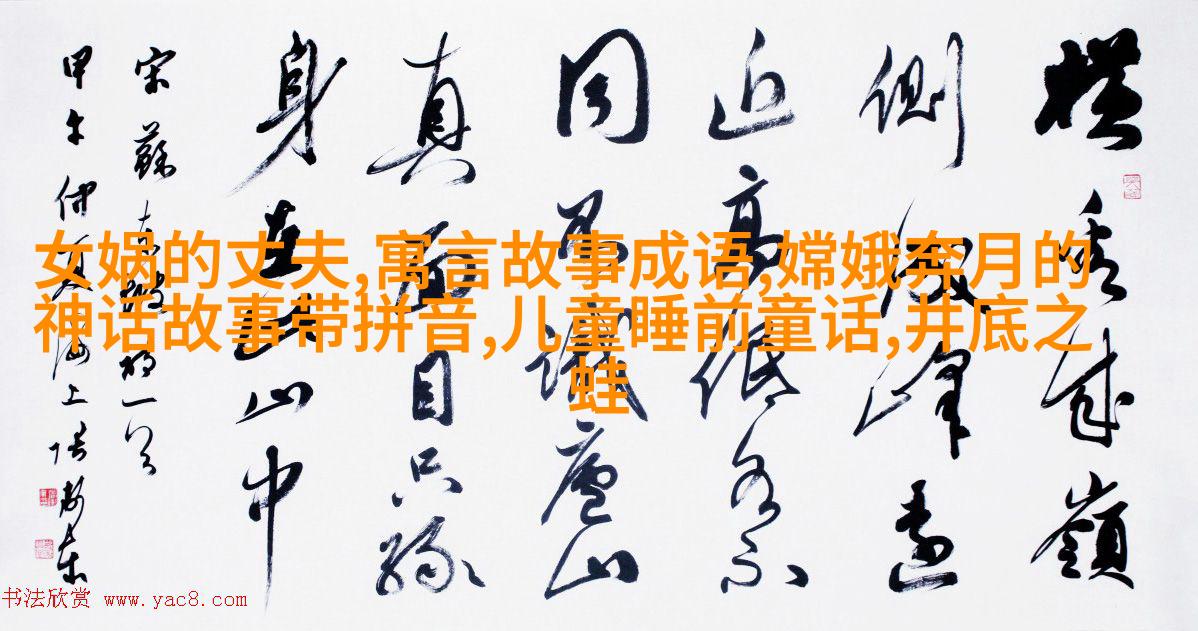 横看成嶺
側成峰遠
近高低各不
同不識廬山
真面目只緣
身在此山中
宋蘇東坡詩一首
甲午仲夏海上張
女娲的丈夫,寓言故事成语,嫦娥奔月的
神话故事带拼音,儿童睡前童话,井底之
蛙
书法欣赏 www.yac8.com